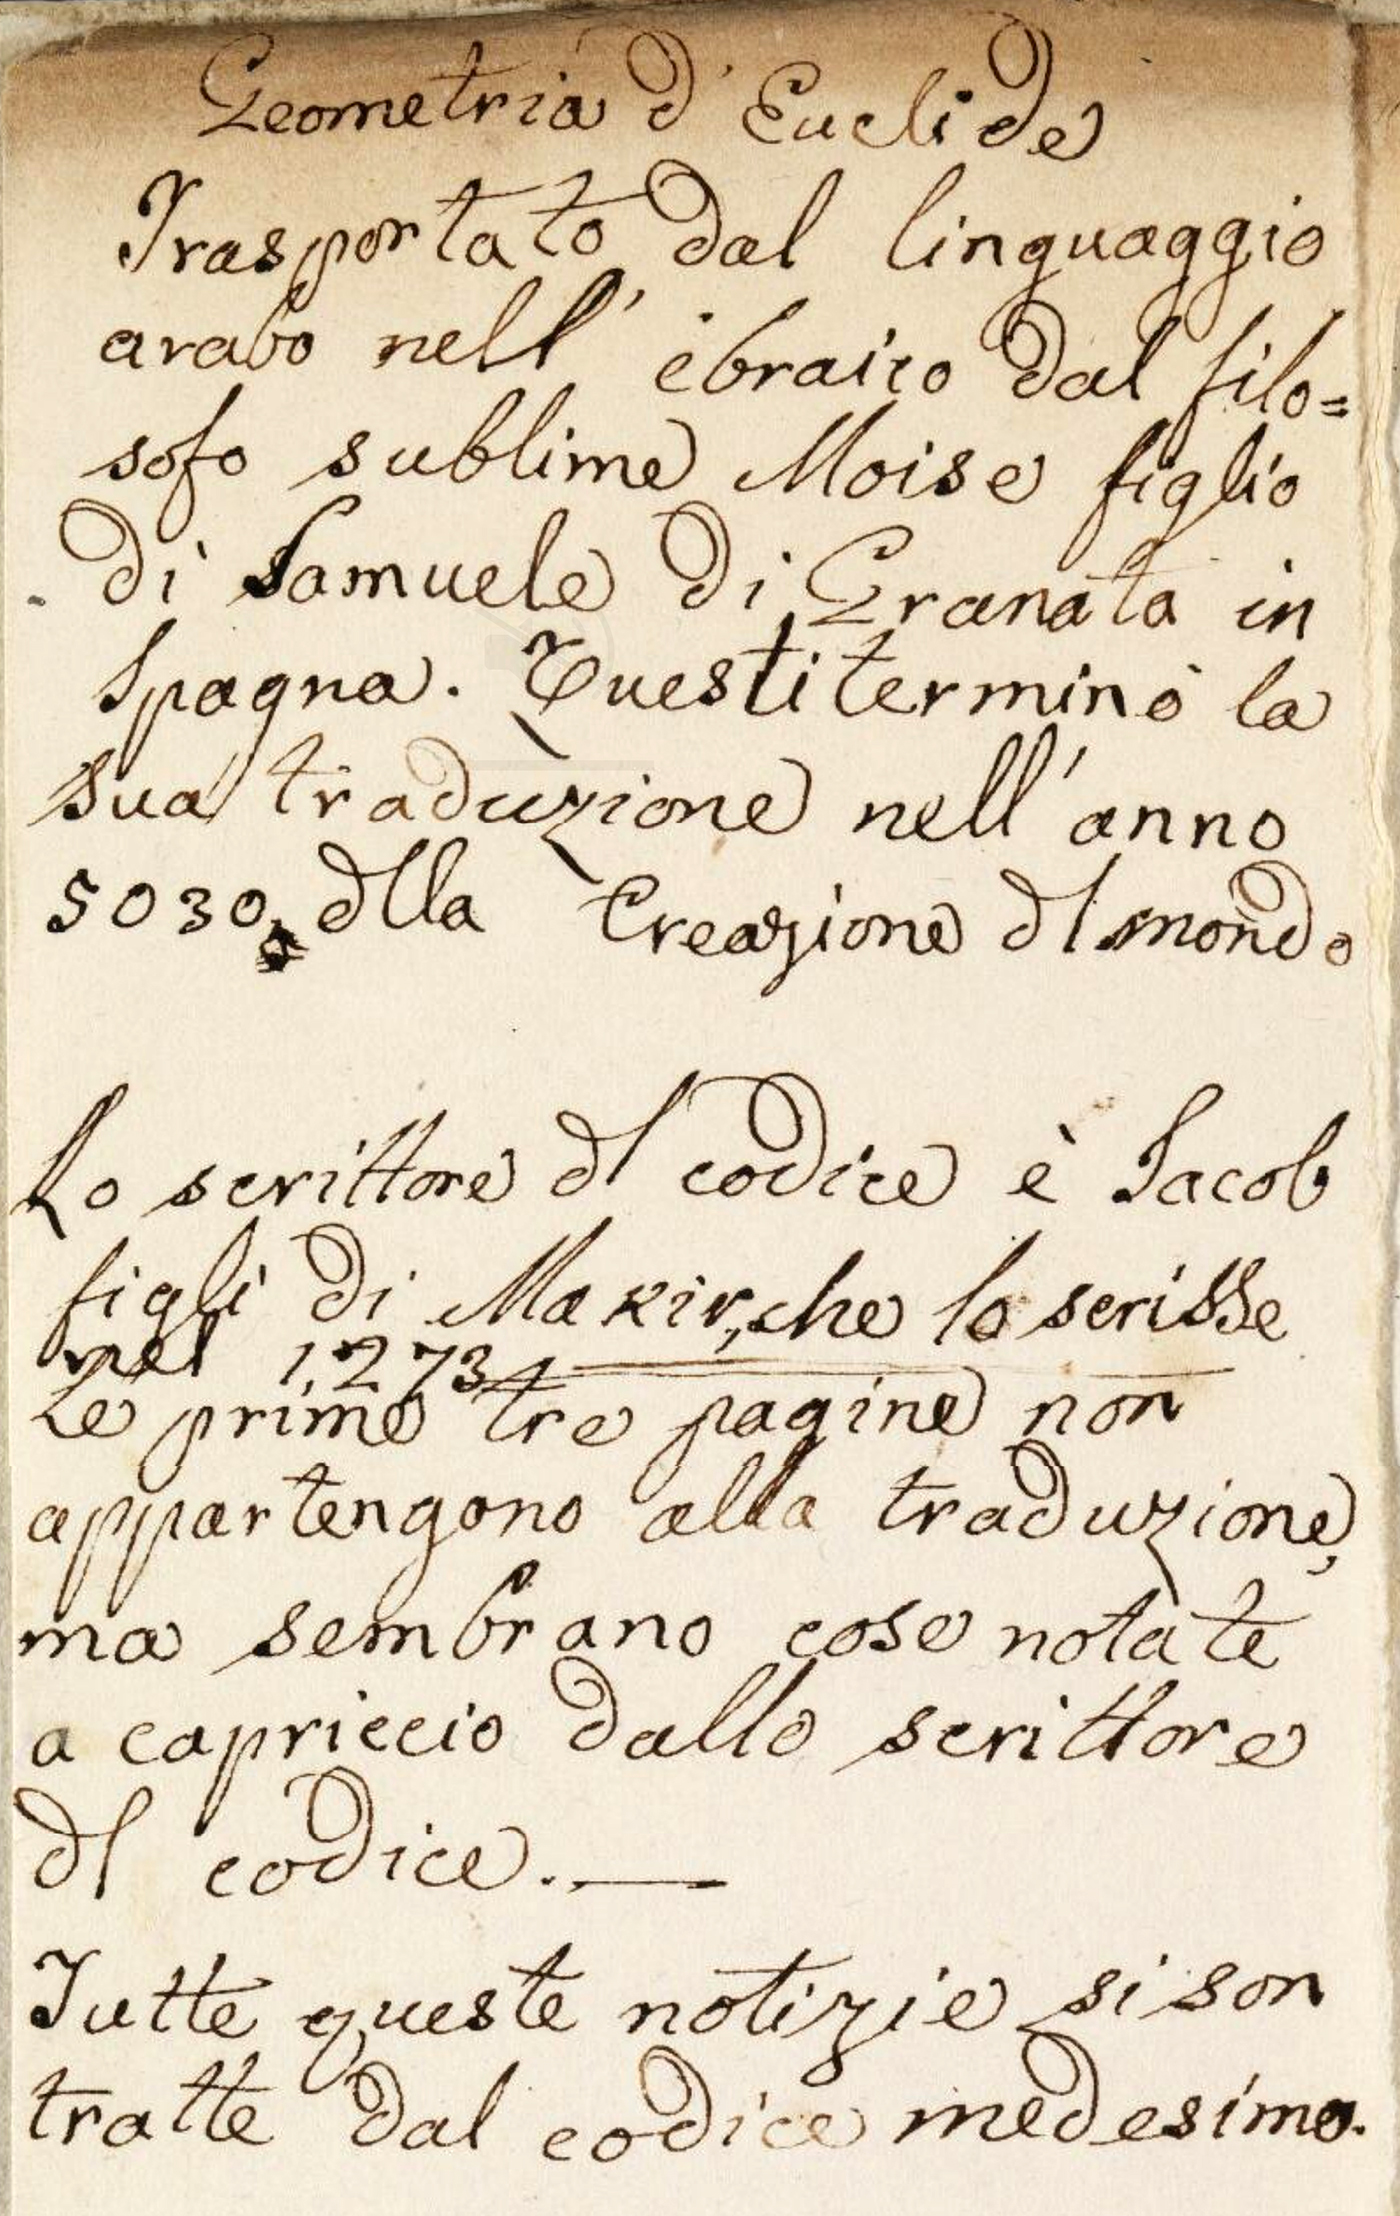 Geometria d'Euclide
Trasportato dal linguaggio
arabo nell' ebraico dal filo=
sofo sublime Moise figlio
di Samuele di Granata in
Spagna. Questi terminò la
sua traduzione nell'anno
5030, dlla Creazione dl mondo
Lo scrittore dl codice è Jacob
figli di Makir, che lo scrisse
nel 1273
Le prime tre pagine non
appartengono alla traduzione,
ma sembrano cose notate
a capriccio dallo scrittore
dl codice.—
Tutte queste notizie si son
tratte dal codice medesimo.